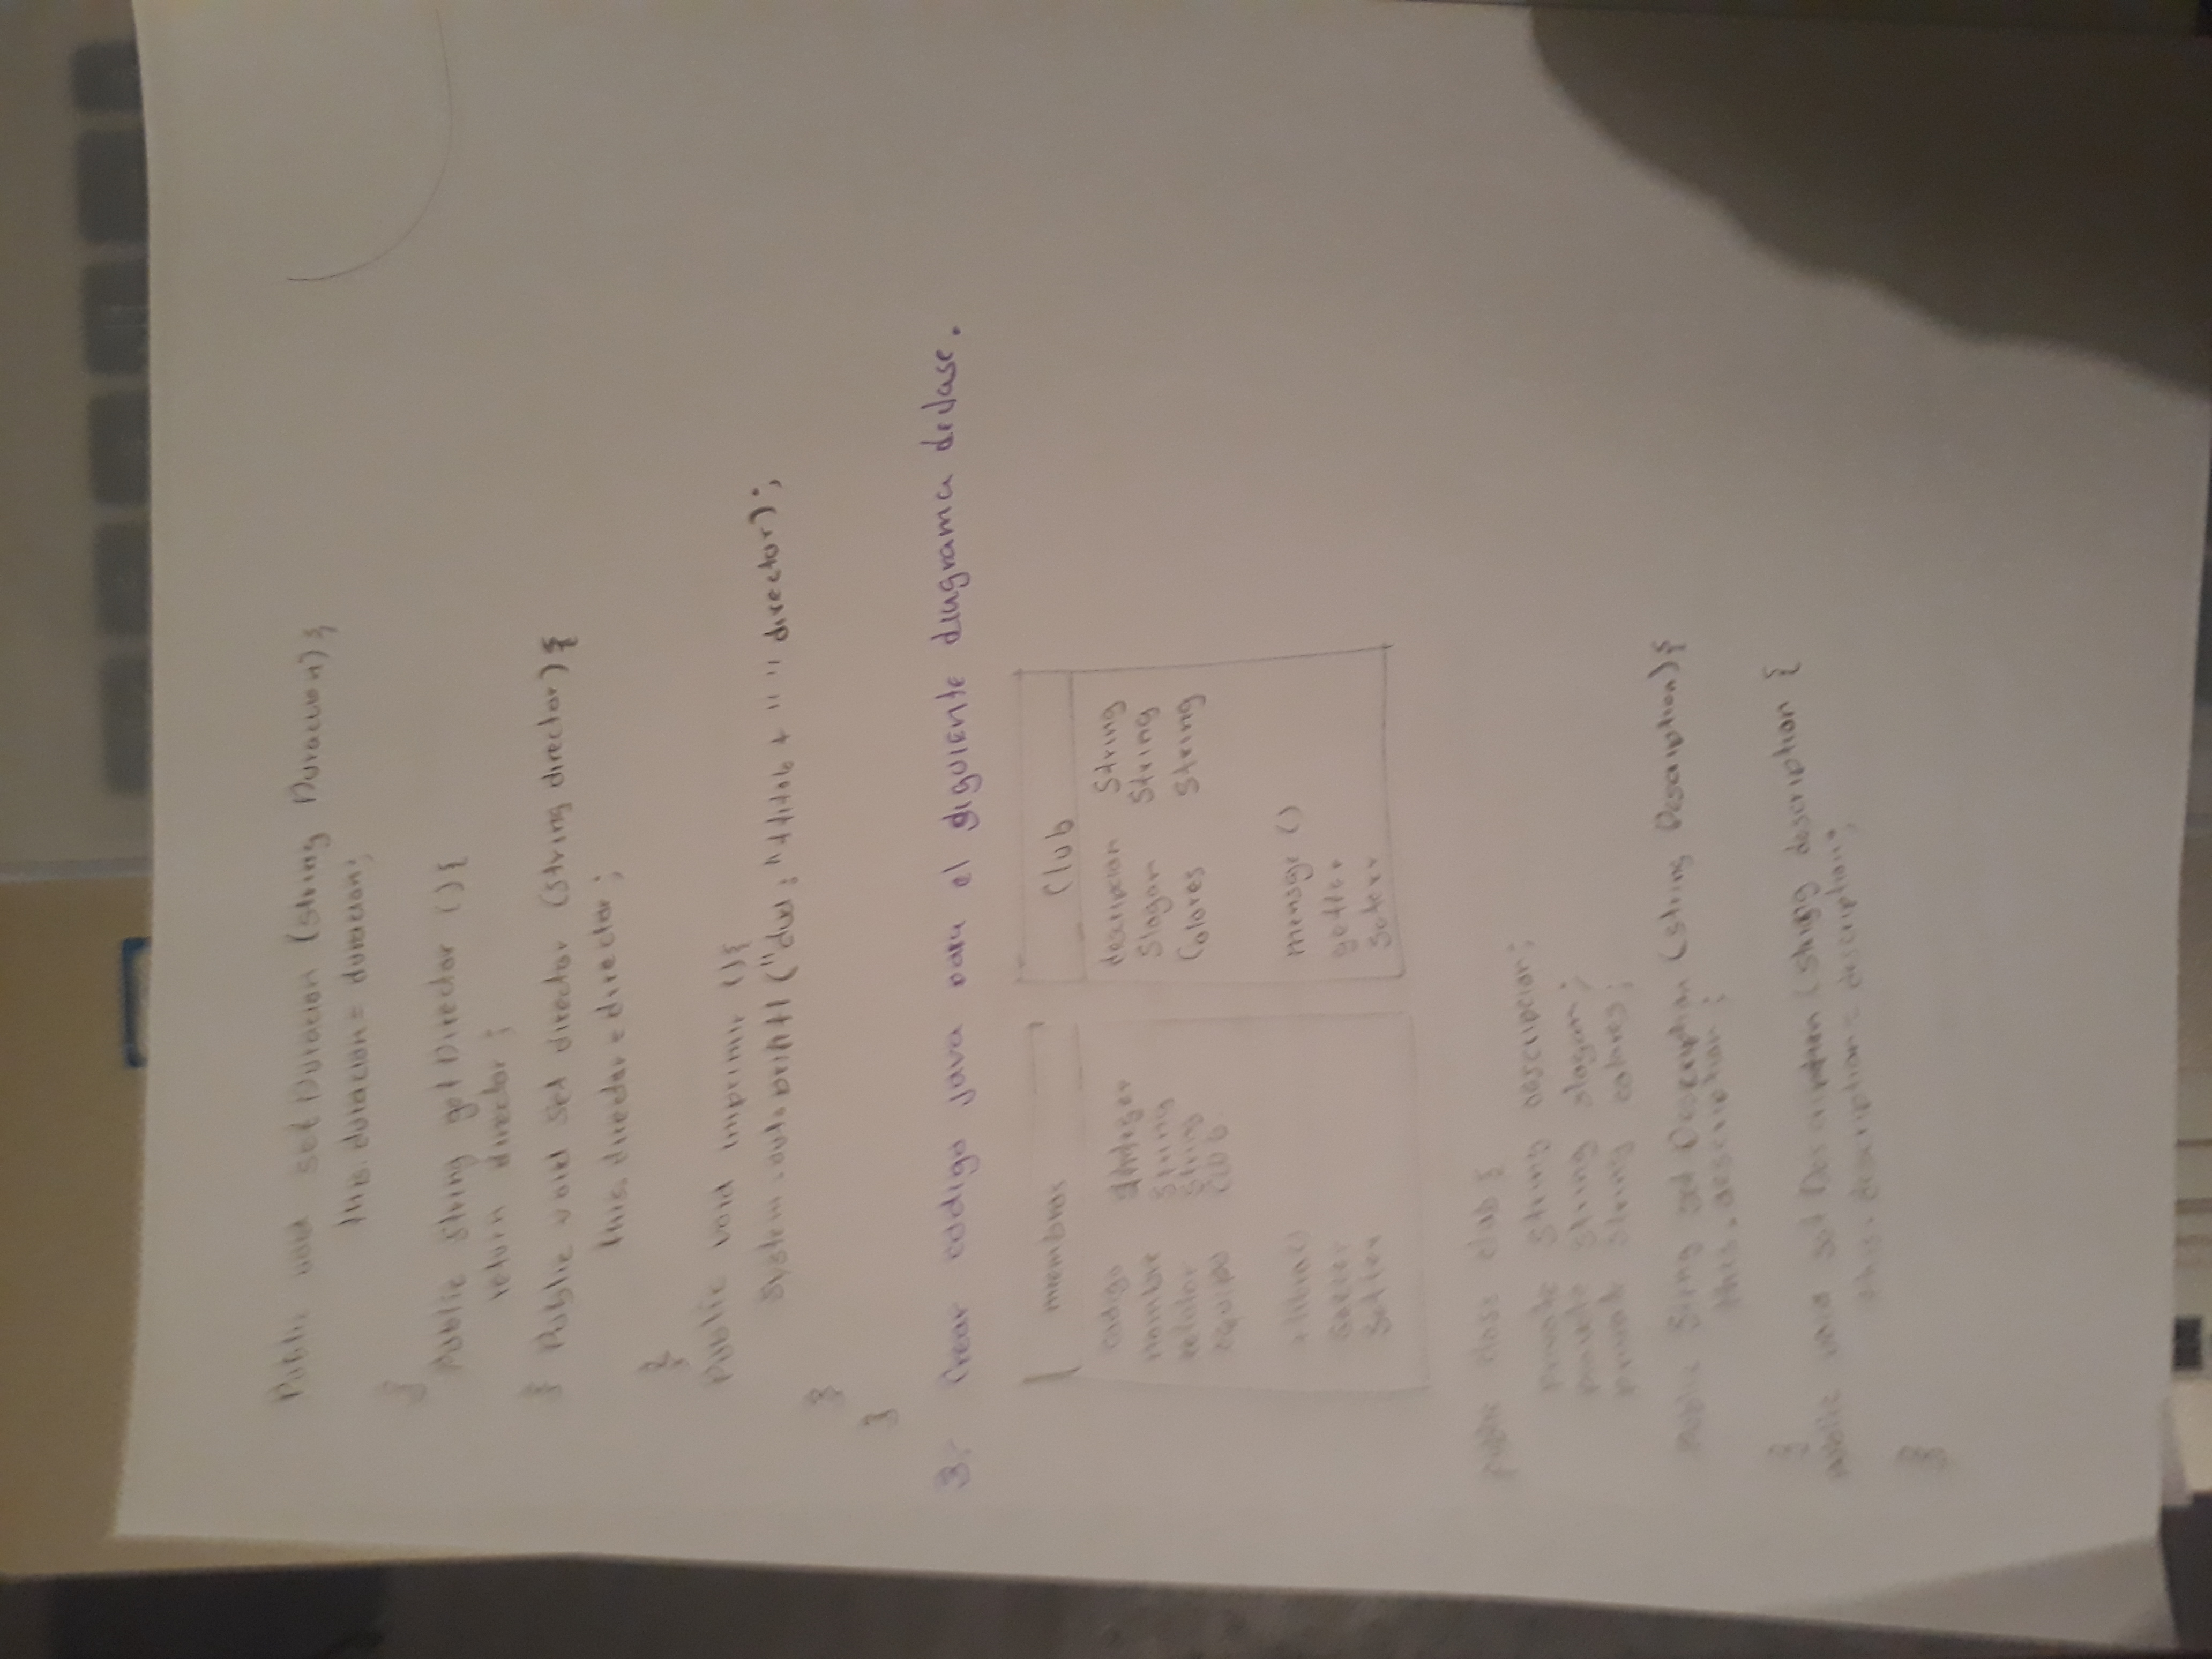 Public void set Duracion (String Duracion) {
this. duracion = duracion;
}
Public String get Director () {
return director ;
} Public void set director (String director) {
this. director = director ;
}
Public void imprimir () {
System . out. printl ("dvd : " + titulo + " " director) ;
}
}
3. Crear codigo java para el siguiente diagrama de clase.
miembros
codigo Integer
nombre String
celular String
equipo Club
+ libra ()
Getter
Setter
Club
descripcion String
Slogan String
Colores String
mensge ()
getter
seterr
public class club {
private string descripcion;
private string slogan ;
private string colores ;
Public String get Description (string Description) {
this . description ;
}
public void set Description (string description {
this. description = description ;
}